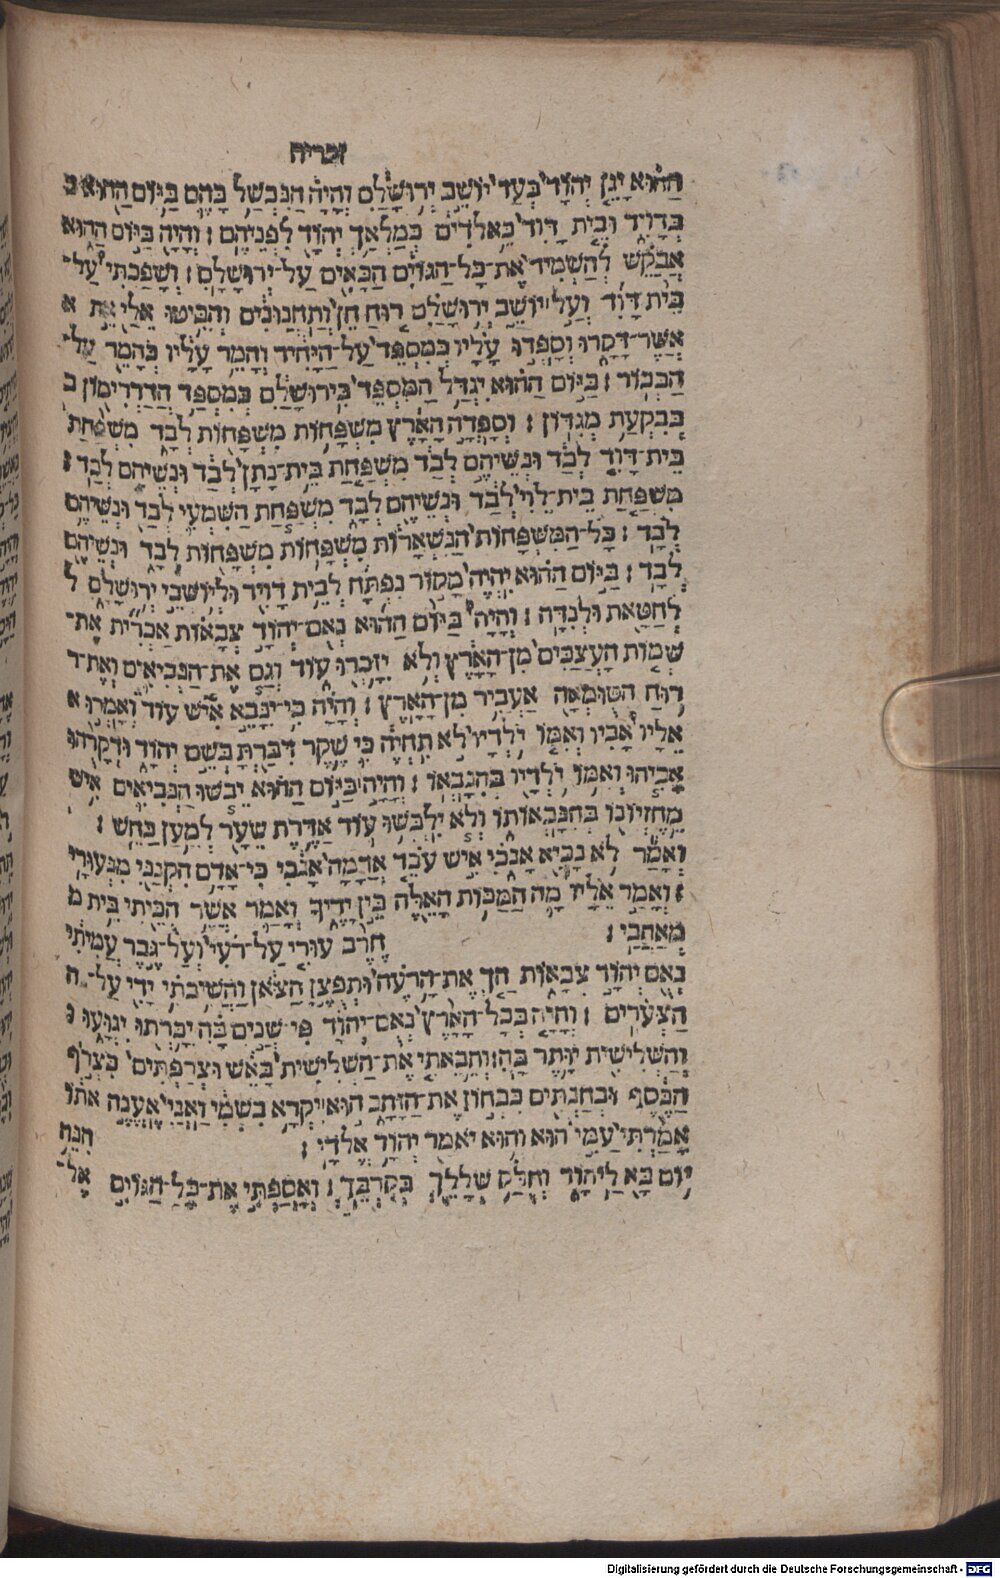 זכריה
הַהוּא יָגֵן יְהוָֹד בְּעַד יוֹשֵׁב יְרוּשָׁלַםִ וְהָיָה הַנִּכְשָׁל בָּהֶם בַּיּוֹם הַהוּא כ
כְּדָוִיד וּבֵית דָּוִיד כֵּאלֹדִים כְּמַלְאַךְ יְהוָֹד לִפְנֵיהֶם : וְהָיָה בַּיּוֹם הַהוּא
אֲבַקֵּשׁ לְהַשְׁמִיד אֶת־כָּל־הַגּוֹיִם הַבָּאִים עַל־יְרוּשָׁלָםִ : וְשָׁפַכְתִּי עַל־
בֵּית דָּוִד וְעַל יוֹשֵׁב יְרוּשָׁלַםִ רוּחַ חֵן וְתַחֲנוּנִים וְהִבִּיטוּ אֵלַי אֵת א
אֲשֶׁר־דָּקָרוּ וְסָפְדוּ עָלָיו כְּמִסְפֵּד עַל־הַיָּחִיד וְהָמֵר עָלָיו כְּהָמֵר עַל־
הַבְּכוֹר : בַּיּוֹם הַהוּא יִגְדַּל הַמִּסְפֵּד בִּירוּשָׁלַםִ כְּמִסְפַּד הֲדַדְרִימוֹן ב
בְּבִקְעַת מְגִדּוֹן : וְסָפְדָה הָאָרֶץ מִשְׁפָּחוֹת מִשְׁפָּחוֹת לְבָד מִשְׁפַּחַת
בֵּית־דָּוִיד לְבָד וּנְשֵׁיהֶם לְבָד מִשְׁפַּחַת בֵּית־נָתָן לְבָד וּנְשֵׁיהֶם לְבָד :
מִשְׁפַּחַת בֵּית־לֵוִי לְבָד וּנְשֵׁיהֶם לְבָד מִשְׁפַּחַת הַשִּׁמְעִי לְבָד וּנְשֵׁיהֶם
לְבָד : כָּל־הַמִּשְׁפָּחוֹת הַנִּשְׁאָרוֹת מִשְׁפָּחוֹת מִשְׁפָּחוֹת לְבָד וּנְשֵׁיהֶם
לְבָד : בַּיּוֹם הַהוּא יִהְיֶה מָקוֹר נִפְתָּח לְבֵית דָּוִיד וּלְיוֹשְׁבֵי יְרוּשָׁלָםִ ל
לְחַטָּאת וּלְנִדָּה : וְהָיָה בַּיּוֹם הַהוּא נְאֻם־יְהוָֹד צְבָאוֹת אַכְרִית אֶת־
שְׁמוֹת הָעֲצַבִּים מִן־הָאָרֶץ וְלֹא יִזָּכְרוּ עוֹד וְגַם אֶת־הַנְּבִיאִים וְאֶת־ר
רוּחַ הַטּוּמְאָה אַעֲבִיר מִן־הָאָרֶץ : וְהָיָה כִּי־יִנָּבֵא אִישׁ עוֹד וְאָמְרוּ א
אֵלָיו אָבִיו וְאִמּוֹ יֹלְדָיו לֹא תִחְיֶה כִּי שֶׁקֶר דִּבַּרְתָּ בְּשֵׁם יְהוָֹד וּדְקָרֻהוּ
אָבִיהוּ וְאִמּוֹ יֹלְדָיו בְּהִנָּבְאוֹ : וְהָיָה בַּיּוֹם הַהוּא יֵבֹשׁוּ הַנְּבִיאִים אִישׁ
מֵחֶזְיוֹנוֹ בְּהִנָּבְאוֹתוֹ וְלֹא יִלְבְּשׁוּ עוֹד אַדֶּרֶת שֵׂעָר לְמַעַן כַּחֵשׁ :
וְאָמַר לֹא נָבִיא אָנֹכִי אִישׁ עֹבֵד אֲדָמָה אָנֹכִי כִּי־אָדָם הִקְנַנִי מִנְּעוּרָי
: וְאָמַר אֵלָיו מָה הַמַּכּוֹת הָאֵלֶּה בֵּין יָדֶיךָ וְאָמַר אֲשֶׁר הֻכֵּיתִי בֵּית מ
מְאַהֲבָי : חֶרֶב עוּרִי עַל־רֹעִי וְעַל־גֶּבֶר עֲמִיתִי
נְאֻם יְהוָֹד צְבָאוֹת הַךְ אֶת־הָרֹעֶה וּתְפוּצֶןָ הַצֹּאן וַהֲשִׁיבֹתִי יָדִי עַל־ה
הַצֹּעֲרִים : וְהָיָה בְכָל־הָאָרֶץ נְאֻם־יְהוָֹד פִּי־שְׁנַיִם בָּהּ יִכָּרְתוּ יִגְוָעוּ ו
וְהַשְּׁלִישִׁית יִוָּתֶר בָּהּ: וְהֵבֵאתִי אֶת־הַשְּׁלִישִׁית בָּאֵשׁ וּצְרַפְתִּים כִּצְרֹף
הַכֶּסֶף וּבְחַנְתִּים כִּבְחוֹן אֶת־הַזָּהָב הוּא יִקְרָא בִשְׁמִי וַאֲנִי אֶעֱנֶה אֹתוֹ
אָמַרְתִּי עַמִּי הוּא וְהוּא יֹאמַר יְהוָֹד אֱלֹדָי : הִנֵּה
יוֹם בָּא לַיהוָֹד וְחֻלַּק שְׁלָלֵךְ בְּקִרְבֵּךְ : וְאָסַפְתִּי אֶת־כָּל־הַגּוֹיִם אֶל־
Digitalisierung gefördert durch die Deutsche Forschungsgemeinschaft - DFG